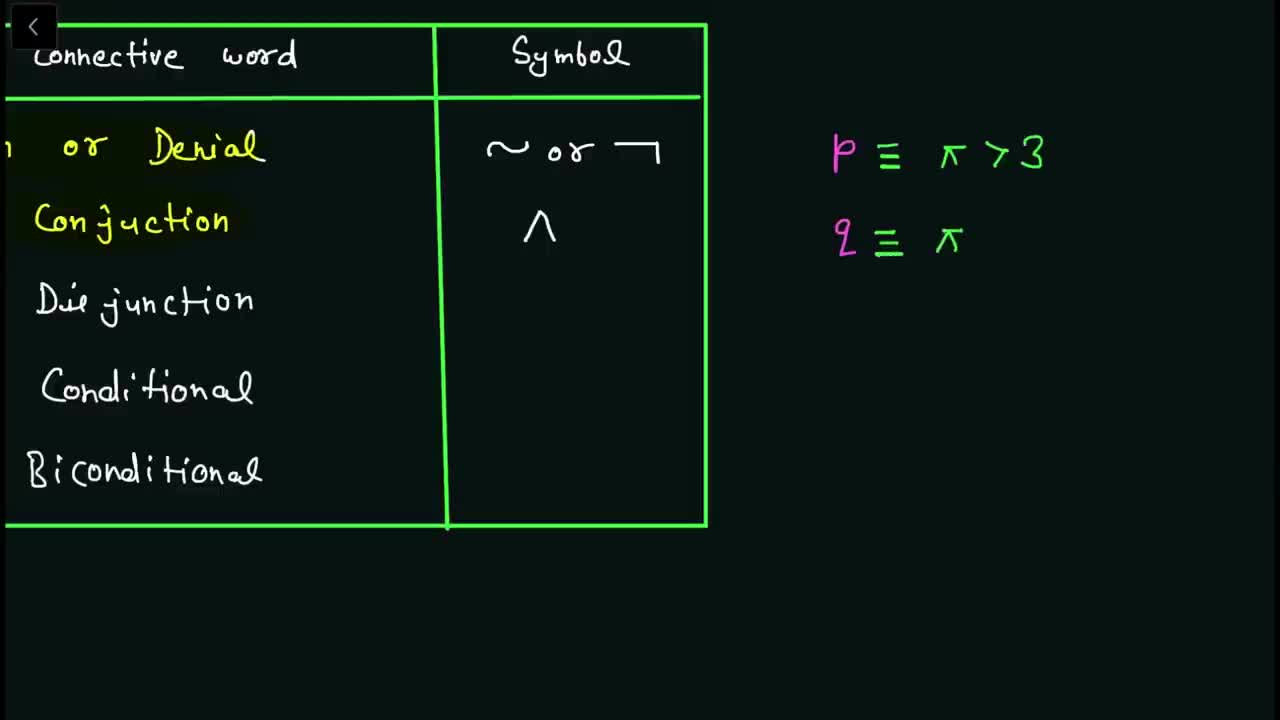 Connective word Symbol
n or Denial ~ or ¬
Conjuction ∧
Disjunction
Conditional
Biconditional
p ≡ π > 3
q ≡ π